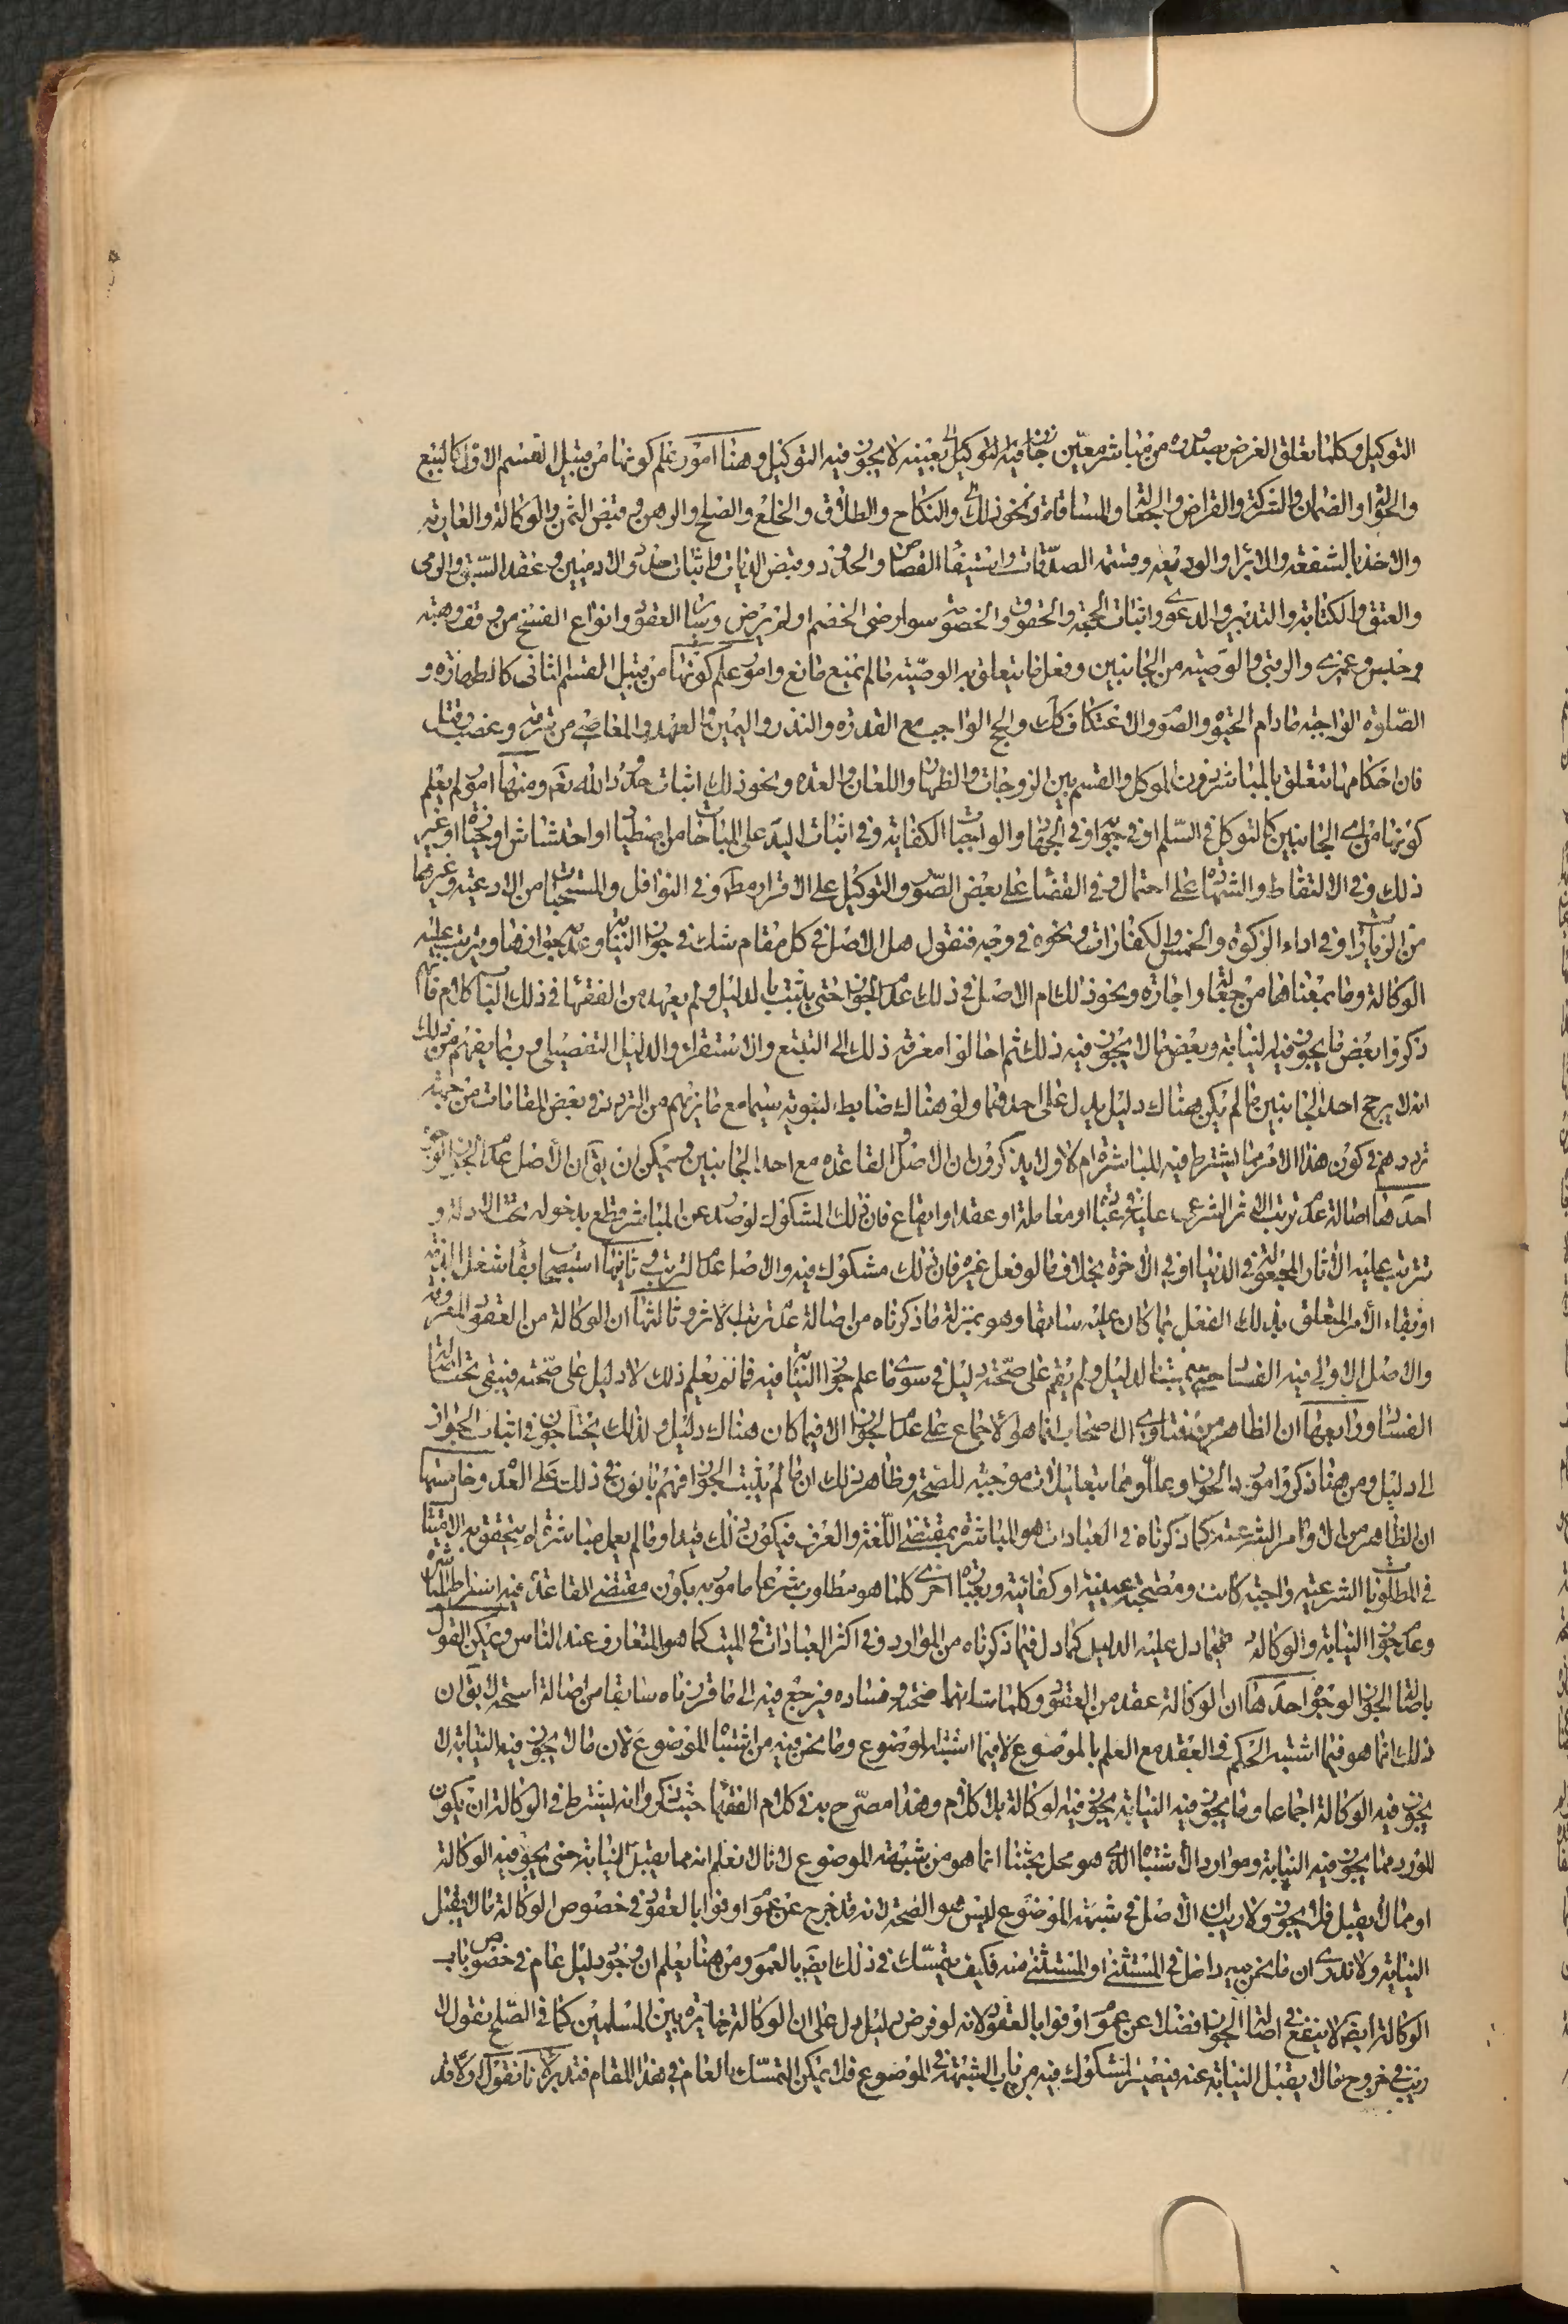 التوكيل وكلما تعلق الغرض بصدوره من مباشر معين لا يجوز فيه التوكيل وهنا امور علم كونها من قبيل القسم الاول كالبيع
والحوالة والضمان والشركة والقراض والجعالة والمساقاة ونحو ذلك والنكاح والطلاق والخلع والصلح والرهن وقبض الثمن والوكالة والعارية
والاخذ بالشفعة والابراء والوديعة وقسمة الصدقات واستيفاء القصاص والحدود وقبض الديات واثبات حدود الادميين وعقد السبق والرمى
والعتق والكتابة والتدبير والدعوى واثبات الحجة والحقوق والخصومة سواء رضى الخصم او لم يرض وسائر العقود وانواع الفسخ من وقف وهبة
وحبس وعمرى والرقبى والوصية من الجانبين وفعل ما يتعلق به الوصية ما لم يمنع مانع وامور علم كونها من قبيل القسم الثانى كالطهارة و
الصلوة الواجبة مادام الحيوة والصوم والاعتكاف كك والحج الواجب مع القدرة والنذر واليمين والعهد والمعاصى من سرقة وغصب وقتل
فان احكامها تتعلق بالمباشر دون الموكل والقسم بين الزوجات والظهار واللعان والعدة ونحو ذلك اثبات حدود الله تعم ومنها امور لم يعلم
كونها من اى الجانبين كالتوكل فى السلم او فى او فى الجهاد والواجبات الكفاية وفى اثبات اليد على المباحات من اصطياد او احتشاش او نحوه او غير
ذلك وفى الالتقاط والشهادة على احتمال وفى القضاء على بعض الصور والتوكيل على الاقرار مط وفى النوافل والمستحبات من الادعية وغيرها
من الزيارات او فى اداء الزكوة والخمس والكفارات ونحوه فى وجه فنقول هل الاصل فى كل مقام شك فى جواز النيابة وعدمه جوازها ويترتب عليه
الوكالة وما بمعناها من جعالة واجارة ونحو ذلك ام الاصل فى ذلك عدم الجواز حتى يثبت بالدليل ولم يعهد من الفقهاء فى ذلك الباب كلام فانهم
ذكروا بعض ما يجوز فيه النيابة وبعض ما لا يجوز فيه ذلك ثم احالوا معرفة ذلك الى التتبع والاستقراء والدليل التفصيلى وربما يفهم من ذلك
انه لا يرجح احد الجانبين ما لم يكن هناك دليل يدل على احدهما ولو هناك ضابط لنبوته سيما مع ما نريهم من التردد فى بعض المقامات من جهة
ترددهم فى كون هذا الامر مما يشترط فيه المباشرة ام لا ولا يذكرون ان الاصل والقاعدة مع احد الجانبين ويمكن ان يق ان الاصل عدم الجواز لوجوه
احدها اصالة عدم ترتب الاثر الشرعى عليه او معاملة او عقد او ايقاع فان ذلك المشكوك لو صدر عن المباشر قطع بدخوله تحت الادلة و
تترتب عليه الاثار المجعولة فى الدنيا او فى الاخرة بخلاف ما لو فعل غيره فان ذلك مشكوك فيه والاصل عدم الترتب وثانيها استصحاب بقاء شغل الذمة
او بقاء الامر المتعلق بذلك الفعل بما كان عليه سابقا وهو بمنزلة ما ذكرناه من اصالة عدم ترتب الاثر وثالثها ان الوكالة من العقود المقررة
والاصل الاولى فيه الفساد حتى يثبت بالدليل ولم يقم على صحته دليل فى سوى ما علم جواز النيابة فيه فما لم يعلم ذلك لا دليل على صحته فيبقى تحت اصالة
الفساد ورابعها ان الظاهر من فتاوى الاصحاب انما هو الاجماع على عدم الجواز الا فيما كان هناك دليل ولذلك يحتاجون فى اثبات الجواز
الى دليل ومن هنا ذكروا موارد الجواز وعللوها بتعليلات موجبة للصحة وظاهر ذلك ان ما لم يثبت الجواز فهم بانون فى ذلك على العدم وخامسها
ان الظاهر من الاوامر الشرعية كما ذكرناه فى العبادات هو المباشرة بمقتضى اللغة والعرف فيكون ذلك قيدا وما لم يعمل مباشرة لا يتحقق به الامتثال
فى المطلوبات الشرعية واجبة كانت ومستحبة عينية او كفائية وبعبارة اخرى كلما هو مطلوب شرعا مامور به يكون مقتضى القاعدة فيه اشتراط المباشرة
وعدم جواز النيابة والوكالة فيما دل عليه الدليل كما دل فيما ذكرناه من الموارد وفى اكثر العبادات فى الميت كما هو المتعارف عند الناس ويمكن القول
باصالة الجواز لوجوه احدها ان الوكالة عقد من العقود وكلما شك فى صحته وفساده فيرجع فيه الى ما قررناه سابقا من اصالة الصحة لا يق ان
ذلك انما هو فيما اشتبه الحكم فى العقد مع العلم بالموضوع لا فيما اشتبه الموضوع وما نحن فيه من اشتباه الموضوع لان ما لا يجوز فيه النيابة لا
يجوز فيه الوكالة اجماعا وما يجوز فيه النيابة يجوز فيه الوكالة بلا كلام وهذا مصرح به فى كلام الفقهاء حيث ذكروا انه يشترط فى الوكالة ان يكون
المورد مما يجوز فيه النيابة وموارد الاشتباه الذى هو محل بحثنا انما هو من شبهة الموضوع لانا لا نعلم انه مما يقبل النيابة حتى يجوز فيه الوكالة
او مما لا يقبل فلا يجوز ولا ريب ان الاصل فى شبهة الموضوع ليس هو الصحة لانه قد خرج عن عموم اوفوا بالعقود فى خصوص الوكالة ما لا يقبل
النيابة ولا ندرى ان ما نحن فيه داخل فى المستثنى او المستثنى منه فكيف يتمسك فى ذلك ايضا بالعموم ومن هنا يعلم ان وجود دليل عام فى خصوص باب
الوكالة ايضا لا ينفع فى اصالة الجواز فضلا عن عموم اوفوا بالعقود لانه لو فرض دليل دل على ان الوكالة جايزة بين المسلمين كما فى الصلح نقول لا
ريب فى خروج ما لا يقبل النيابة عنه فيصير المشكوك فيه من باب الشبهة فى الموضوع فلا يمكن التمسك بالعام فى هذا المقام فتدبر لانا نقول اولا قد